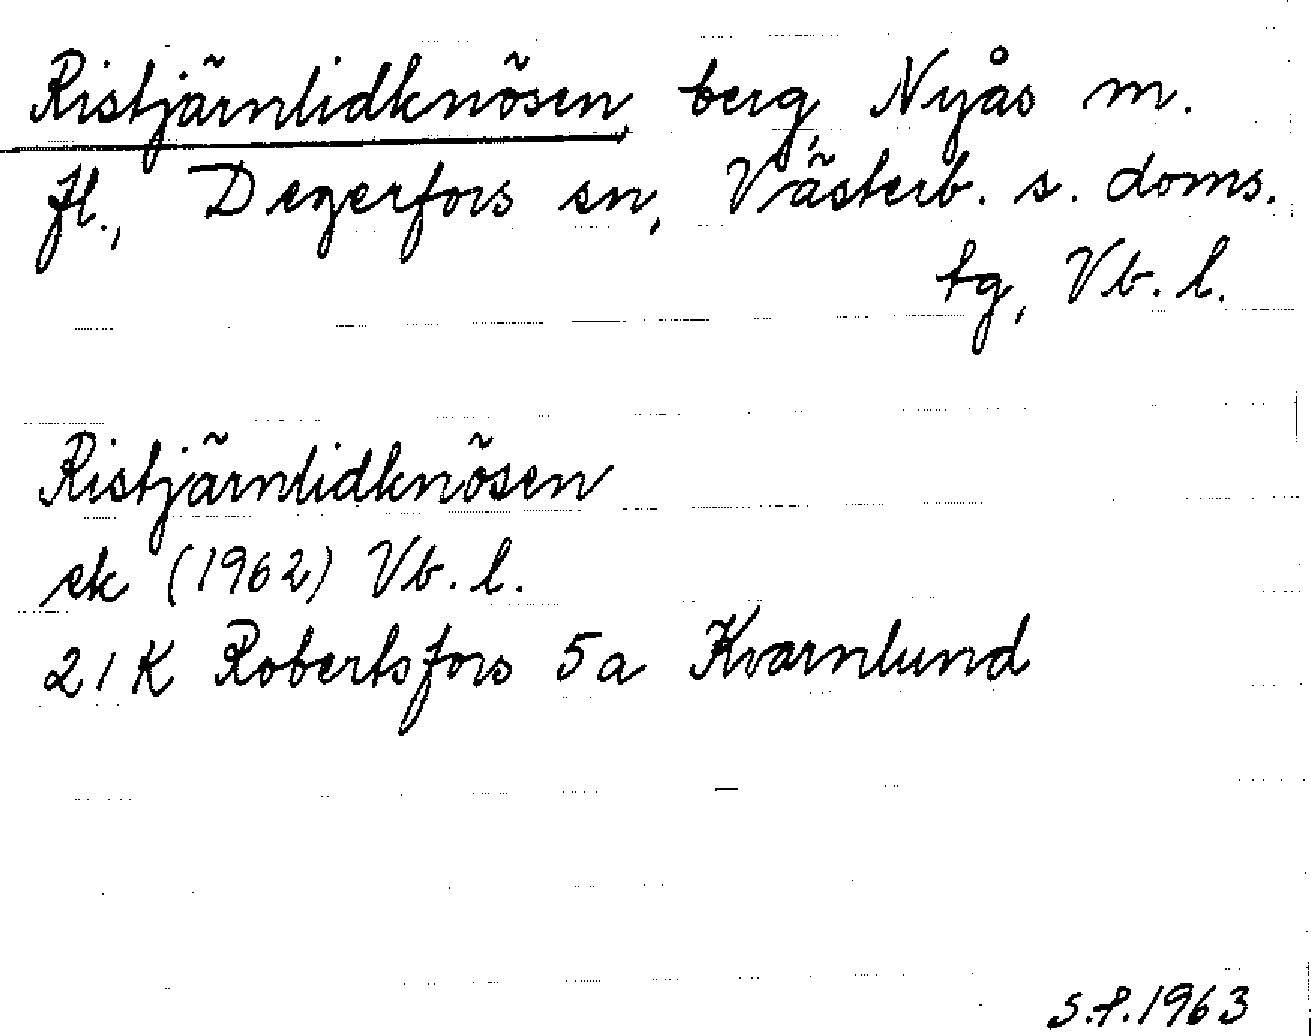 Ristjärnlidknösen, berg, Nyås m.
fl., Degerfors sn, Västerb. s. doms.
tg, Vb. l.
Ristjärnlidknösen
ek (1962) Vb. l.
21K Robertsfors 5a Kvarnlund
S.P. 1963